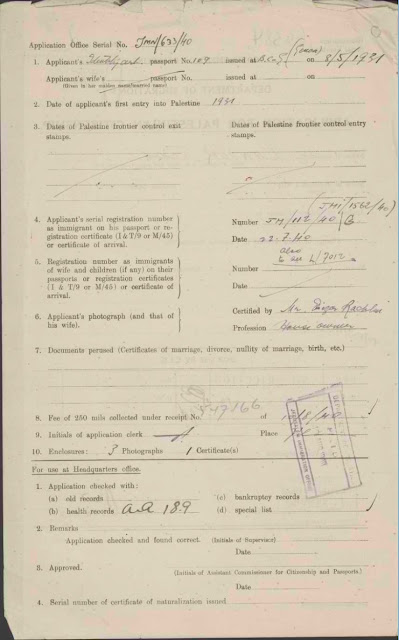 Application Office Serial No. JMN/633/40
1. Applicant's passport No. 109 issued at on 8/5/1931
Applicant's wife's passport No. issued at on
(Given in her maiden name/married name)
2. Date of applicant's first entry into Palestine 1931
3. Dates of Palestine frontier control exit stamps.
Dates of Palestine frontier control entry stamps.
(JMI/1562/40)
4. Applicant's serial registration number
as immigrant on his passport or re-
gistration certificate (I & T/9 or M/45)
or certificate of arrival.
Number JM/112/40
Date 22.7.40
5. Registration number as immigrants
of wife and children (if any) on their
passports or registration certificates
(I & T/9 or M/45) or certificate of
arrival.
Number
Date
6. Applicant's photograph (and that of
his wife).
Certified by Mr.
Profession House owner
7. Documents perused (Certificates of marriage, divorce, nullity of marriage, birth, etc.)
8. Fee of 250 mils collected under receipt No. 549166 of
9. Initials of application clerk Place
10. Enclosures: 3 Photographs 1 Certificate(s)
For use at Headquarters office.
1. Application checked with:
(a) old records (c) bankruptcy records
(b) health records 189 (d) special list
2. Remarks
Application checked and found correct. (Initials of Supervisor)
Date
3. Approved.
(Initials of Assistant Commissioner for Citizenship and Passports.)
Date
4. Serial number of certificate of naturalization issued